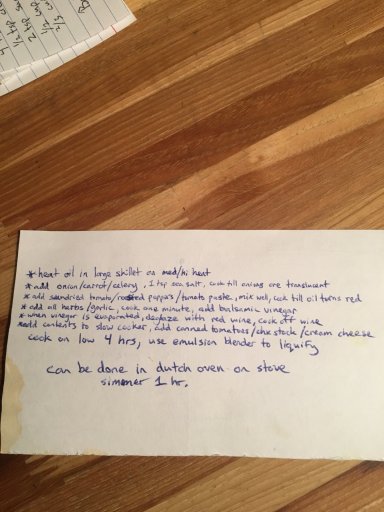 1/2 tsp
2 tsp
1/2
2/3 cup
* heat oil in large skillet on med/hi heat
* add onion/carrot/celery, 1 tsp sea salt, cook till onions are translucent
* add sundried tomato/roasted peppers/tomato paste, mix well, cook till oil turns red
* add all herbs/garlic, cook one minute, add balsamic vinegar
* when vinegar is evaporated, deglaze with red wine, cook off wine
* add contents to slow cooker, add canned tomatoes/chx stock/cream cheese
cook on low 4 hrs, use emulsion blender to liquify
can be done in dutch oven on stove
simmer 1 hr.